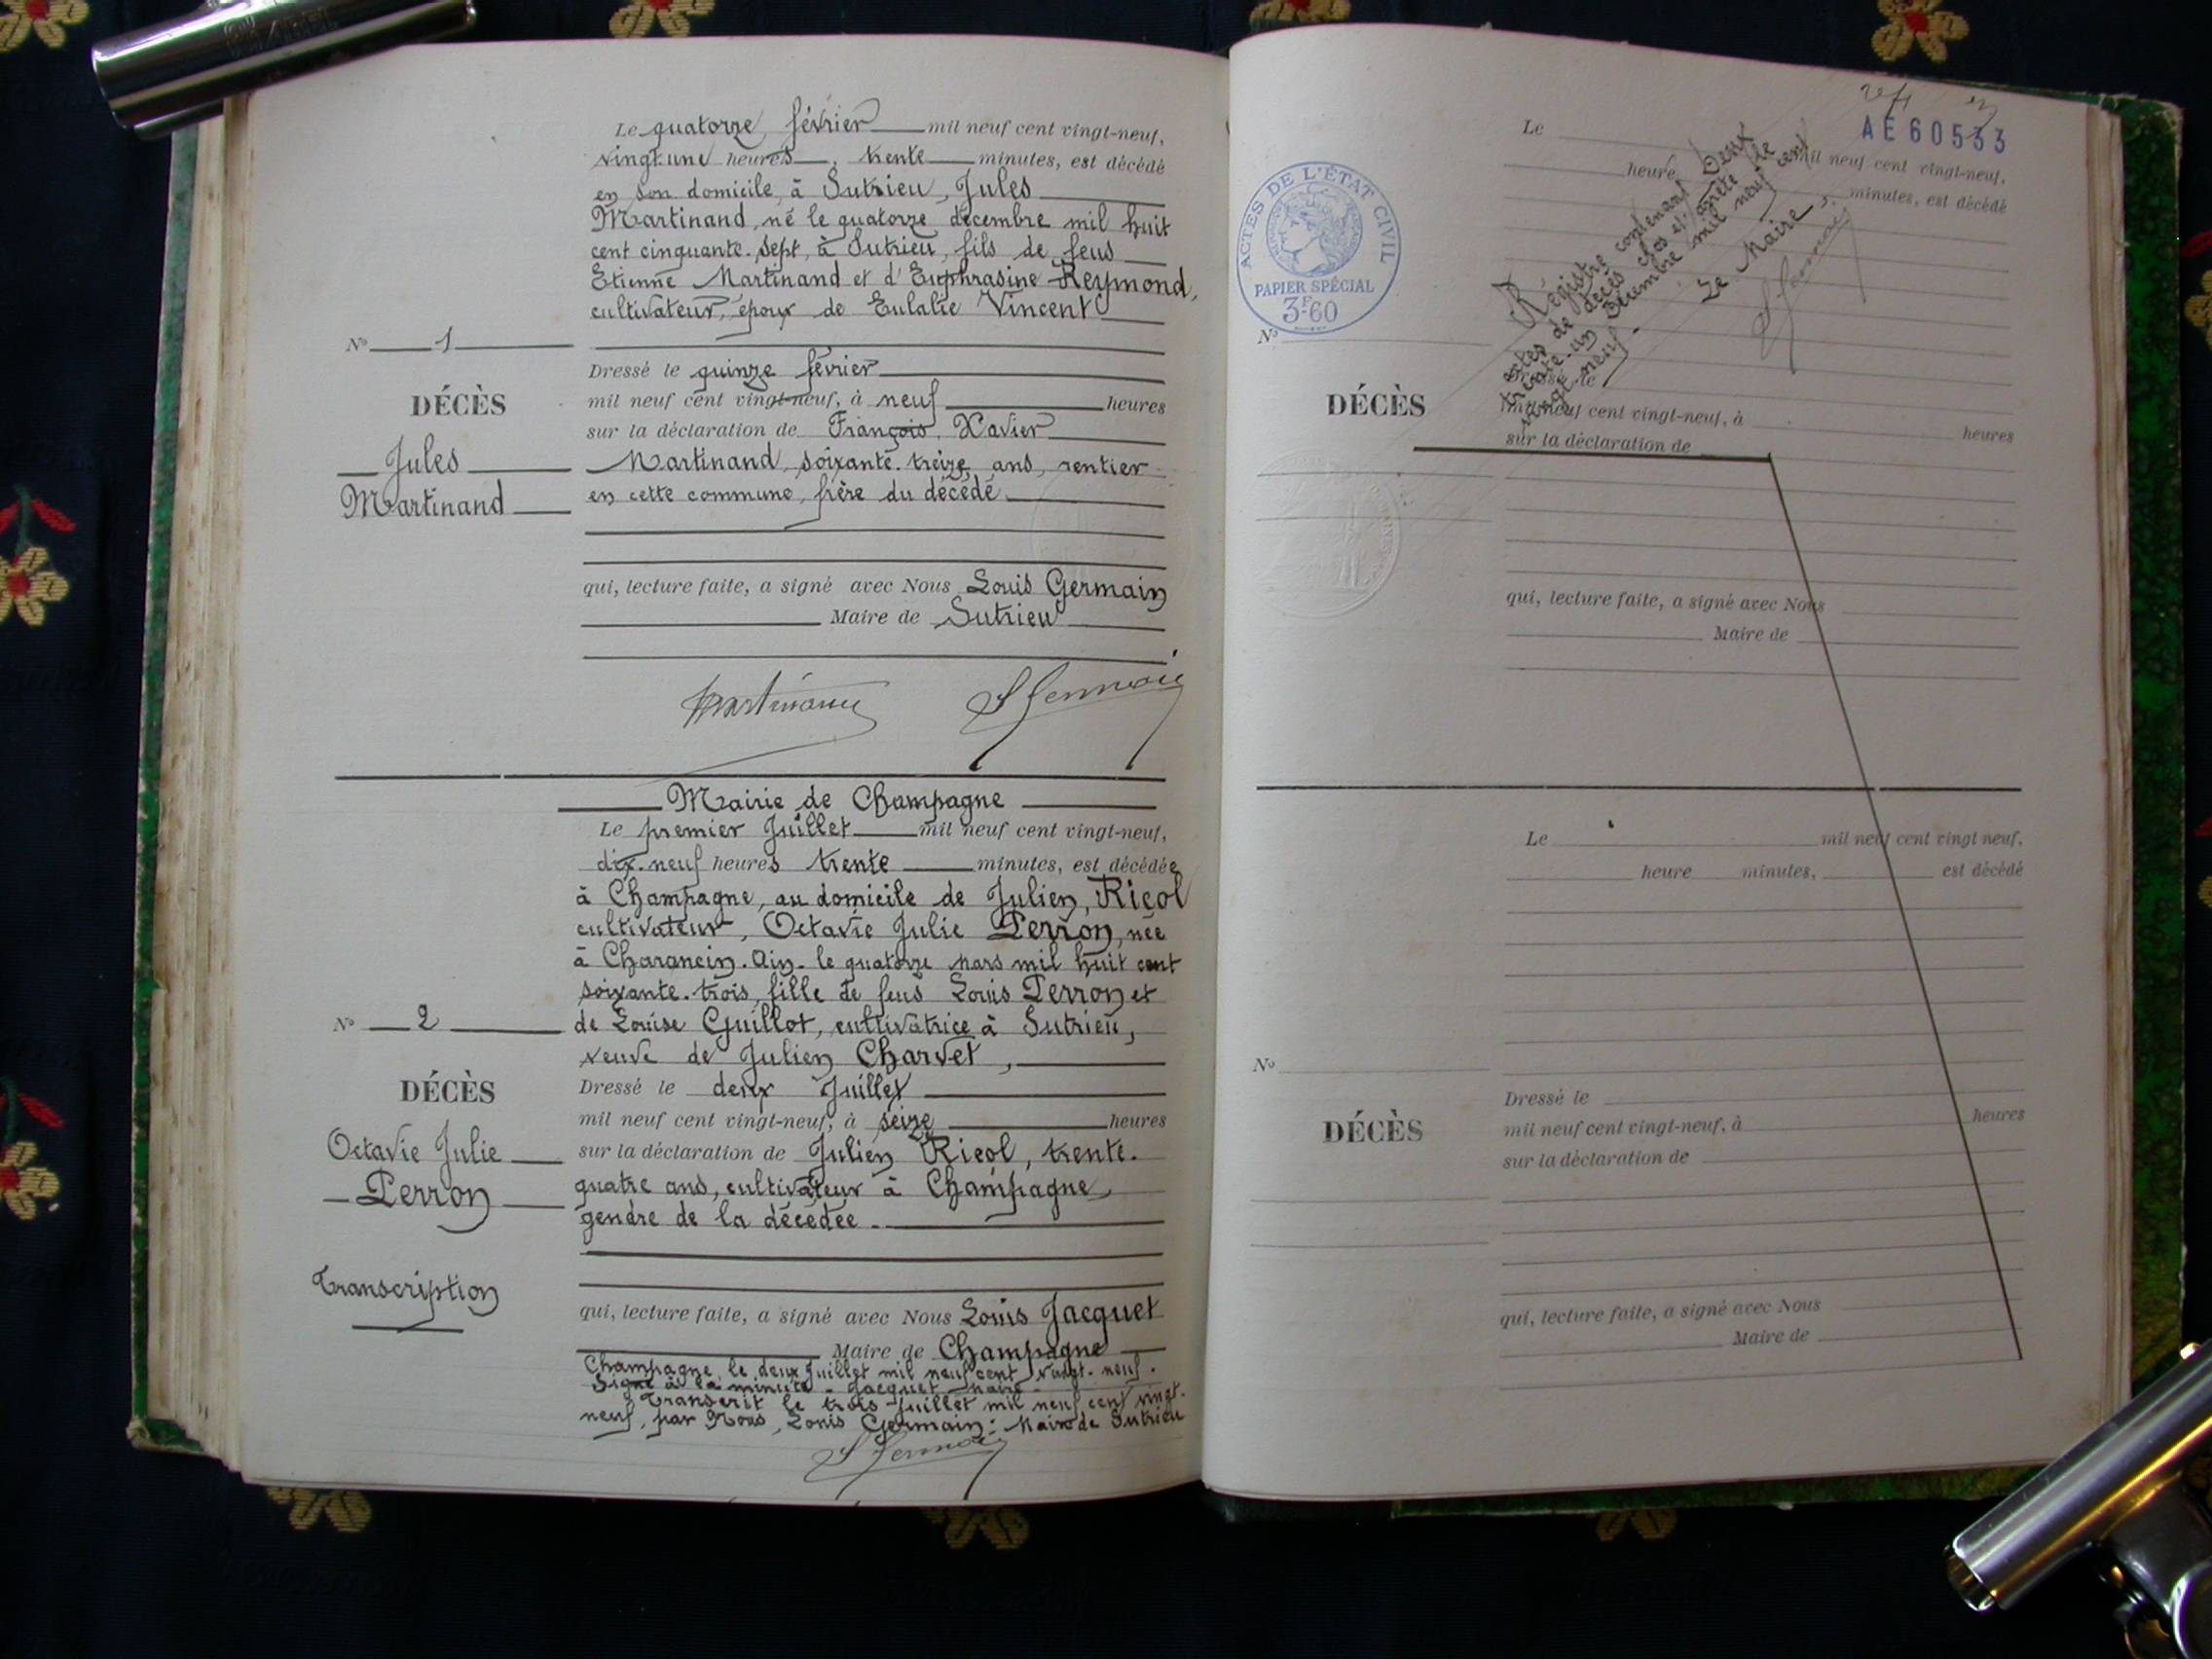 Le quatorze février mil neuf cent vingt-neuf,
vingt-une heures, trente minutes, est décédé
en son domicile, à Sutrieu, Jules
Martinand, né le quatorze décembre mil huit
cent cinquante-sept, à Sutrieu, fils de feus
Etienne Martinand et d'Euphrasine Reymond,
cultivateur, époux de Eulalie Vincent
N° 1
Dressé le quinze février
DÉCÈS
mil neuf cent vingt-neuf, à neuf heures
sur la déclaration de François Xavier
Jules
Martinand, soixante-treize ans, rentier
Martinand
en cette commune, frère du décédé
qui, lecture faite, a signé avec Nous Louis Germain
Maire de Sutrieu
Martinand L Germain
Mairie de Champagne
Le premier Juillet mil neuf cent vingt-neuf,
dix-neuf heures trente minutes, est décédée
à Champagne, au domicile de Julien, Ricol
cultivateur, Octavie Julie Perron, née
à Charancin. Ain. le quatorze mars mil huit cent
soixante-trois, fille de feus Louis Perron et
N° 2
de Louise Guillot, cultivatrice à Sutrieu,
veuve de Julien Charvet,
DÉCÈS
Dressé le deux Juillet
mil neuf cent vingt-neuf, à seize heures
Octavie Julie
sur la déclaration de Julien Ricol, trente-
Perron
quatre ans, cultivateur à Champagne,
gendre de la décédée.
Transcription
qui, lecture faite, a signé avec Nous Louis Jacquet
Maire de Champagne
Champagne, le deux Juillet mil neuf cent vingt-neuf.
Signé à la minute - Jacquet maire -
Transcrit le trois Juillet mil neuf cent vingt-
neuf, par Nous, Louis Germain: Maire de Sutrieu
L Germain
AE60533
ACTES DE L'ÉTAT CIVIL
PAPIER SPÉCIAL
3F60
Le mil neuf cent vingt-neuf,
heure, minutes, est décédé
Régistre contenant Deux
actes de décès clos et arrêté le
trente-un Décembre mil neuf cent
vingt neuf.
Le Maire,
L Germain
N°
DÉCÈS
Dressé le
mil neuf cent vingt-neuf, à heures
sur la déclaration de
qui, lecture faite, a signé avec Nous
Maire de
Le mil neuf cent vingt neuf,
heure minutes, est décédé
N°
DÉCÈS
Dressé le
mil neuf cent vingt-neuf, à heures
sur la déclaration de
qui, lecture faite, a signé avec Nous
Maire de